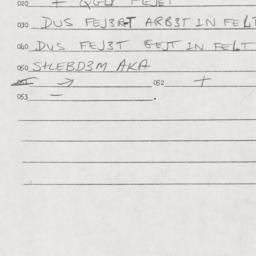 020 +
030 DUS FEJ3RT ARB3T IN FELT
040 DUS FEJ3T GEJT IN FELT
050 StLEBD3M AKA
051 → 052 +
053 — .